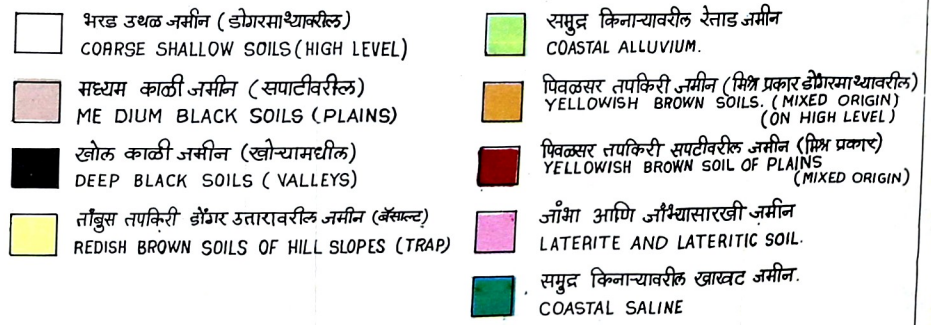 भरड उथळ जमीन (डोंगरमाथ्यावरील)
COARSE SHALLOW SOILS (HIGH LEVEL)
मध्यम काळी जमीन (सपाटीवरील)
ME DIUM BLACK SOILS (PLAINS)
खोल काळी जमीन (खोऱ्यामधील)
DEEP BLACK SOILS (VALLEYS)
तांबुस तपकिरी डोंगर उतारावरील जमीन (बॅसाल्ट)
REDISH BROWN SOILS OF HILL SLOPES (TRAP)
समुद्र किनाऱ्यावरील रेताड जमीन
COASTAL ALLUVIUM.
पिवळसर तपकिरी जमीन (मिश्र प्रकार डोंगरमाथ्यावरील)
YELLOWISH BROWN SOILS. (MIXED ORIGIN)
(ON HIGH LEVEL)
पिवळसर तपकिरी सपटीवरील जमीन (मिश्र प्रकार)
YELLOWISH BROWN SOIL OF PLAINS
(MIXED ORIGIN)
जांभा आणि जांभ्यासारखी जमीन
LATERITE AND LATERITIC SOIL.
समुद्र किनाऱ्यावरील खारवट जमीन.
COASTAL SALINE